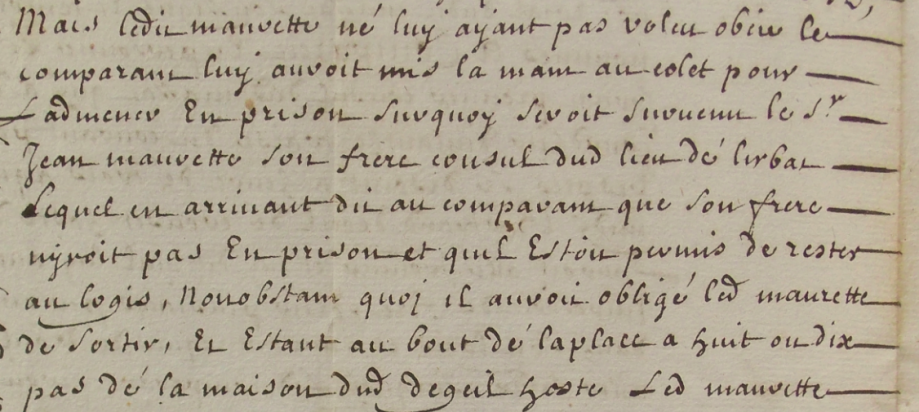 Mais ledit maurette né luy ayant pas voleu obeir le
comparant luy auroit mis la main au colet pour
Ladmener En prison surquoy seroit survenu le sr
Jean maurette son frere consul dud lieu dé lirbat
Lequel en arrivant dit au comparant que son frere
nyroit pas En prison et quil Estoit permis de rester
au logis, Nonobstant quoj il auroit obligé led maurette
de sortir, Et Estant au bout dé laplace a huit ou dix
pas dé la maison dud hoste Led maurette